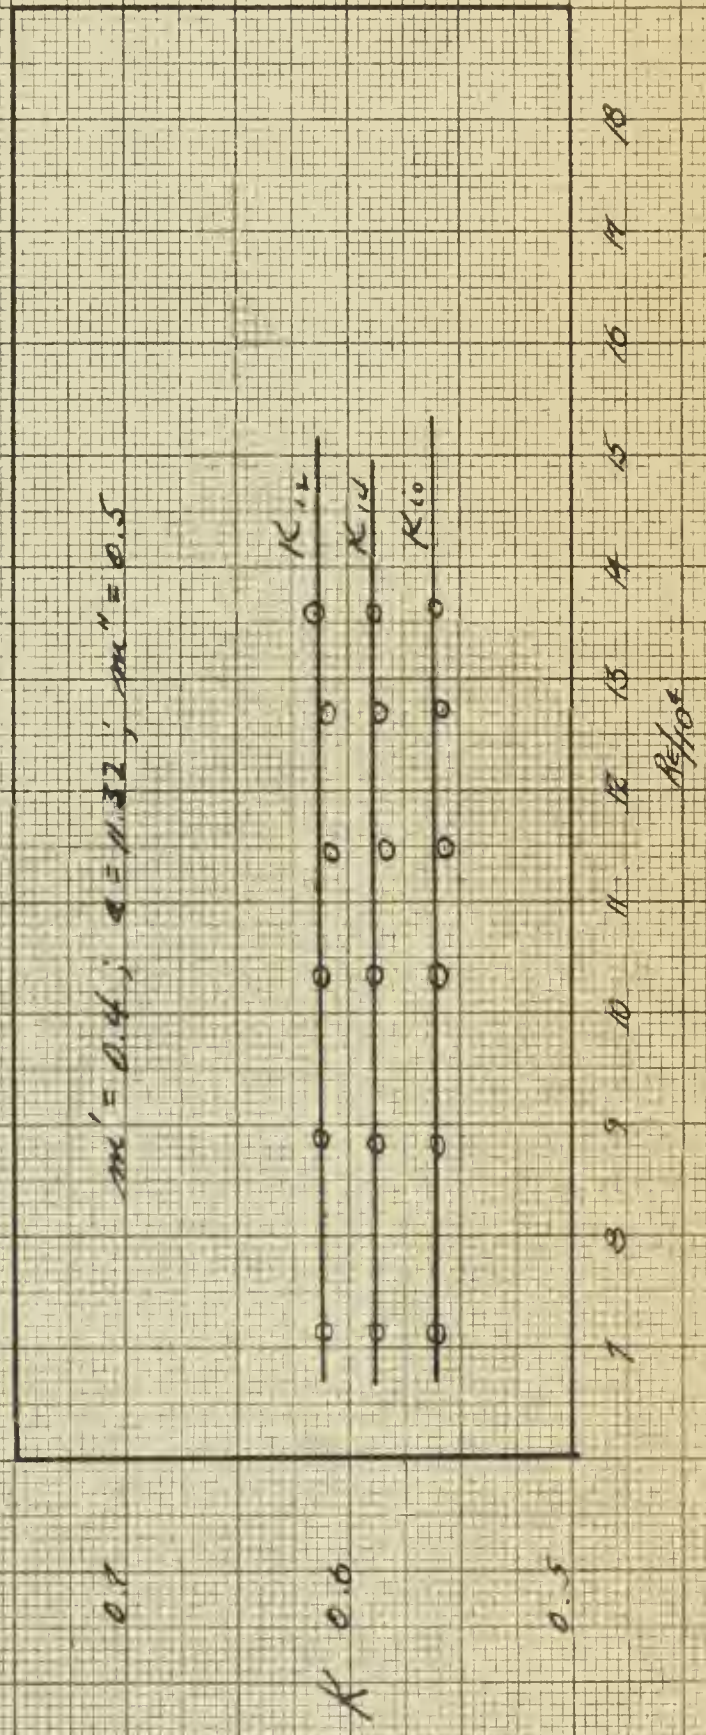 m' = 0.4; a = 11.32; m" = 0.5
K₁₂
K₁₄
K₁₀
0.7
K 0.6
0.5
7 8 9 10 11 12 13 14 15 16 17 18
Re/10⁴